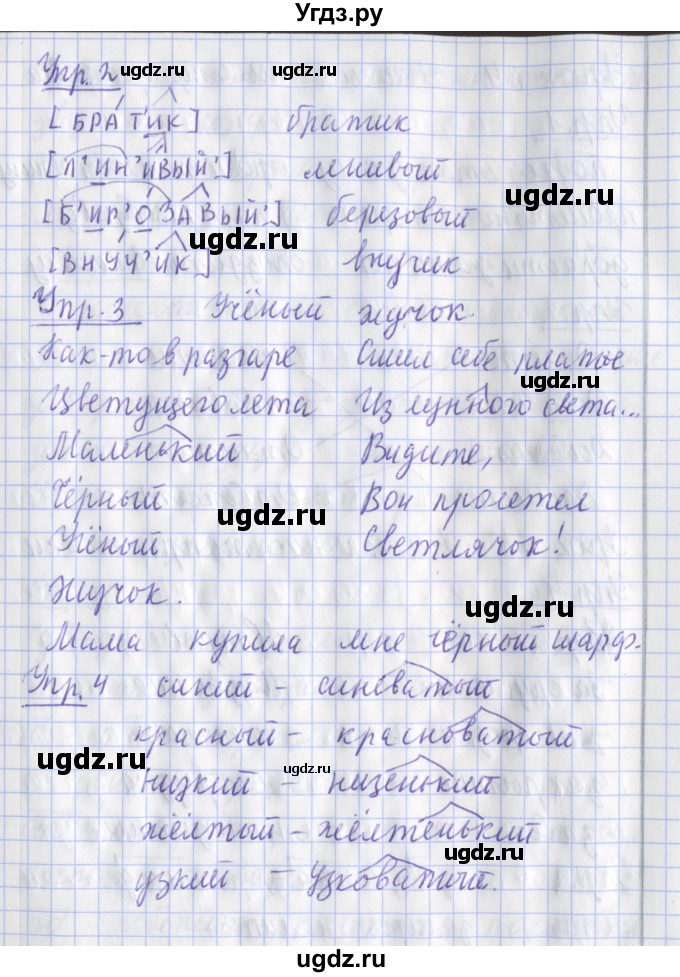 Угдз.ру
Упр. 2
[БРА́Т'ИК] братик
[Л'ИН'И́ВЫЙ'] ленивый
[Б'ИР'О́ЗАВЫЙ'] березовый
[ВНУ́Ч'ИК] внучик
Упр. 3 Учёный жучок.
Как-то в разгаре Сшил себе платье
Цветущего лета Из лунного света...
Маленький Видите,
Чёрный Вон пролетел
Учёный Светлячок!
Жучок.
Мама купила мне чёрный шарф.
Упр. 4 синий - синеватый
красный - красноватый
низкий - низенький
жёлтый - жёлтенький
узкий - узковатый.
ugdz.ru
ugdz.ru
ugdz.ru
ugdz.ru
ugdz.ru
ugdz.ru
ugdz.ru
ugdz.ru
ugdz.ru
ugdz.ru
ugdz.ru
ugdz.ru
ugdz.ru